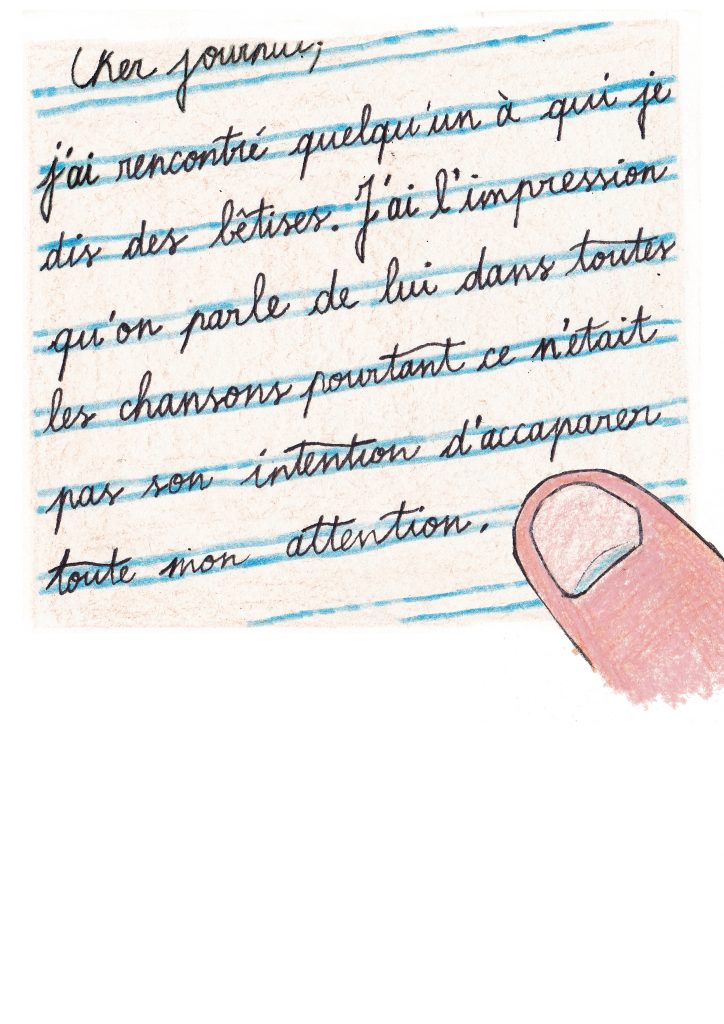 Cher journal,
j'ai rencontré quelqu'un à qui je
dis des bêtises. J'ai l'impression
qu'on parle de lui dans toutes
les chansons pourtant ce n'était
pas son intention d'accaparer
toute mon attention.